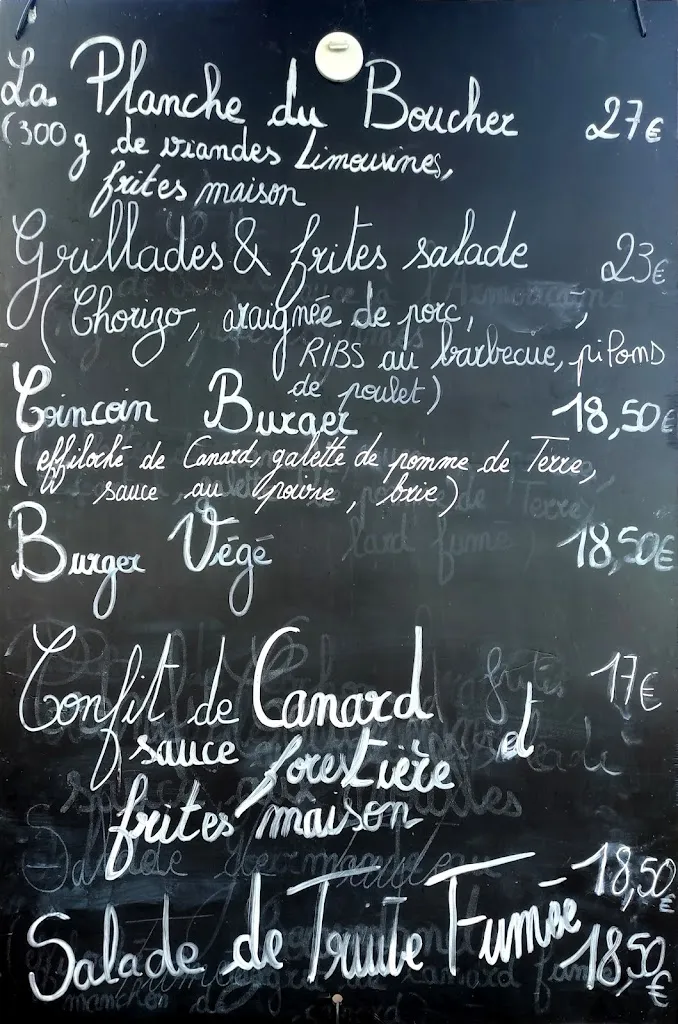 La Planche du Boucher 27€
(300 g de viandes Limousines,
frites maison
Grillades & frites salade 23€
(Chorizo, araignée de porc,
RIBS au barbecue, pilons
de poulet)
Coincoin Burger 18,50€
(effiloché de Canard, galette de pomme de Terre,
sauce au poivre, brie)
Burger Végé 18,50€
Confit de Canard 17€
sauce forestière et
frites maison
18,50€
Salade de Truite Fumée 18,50€